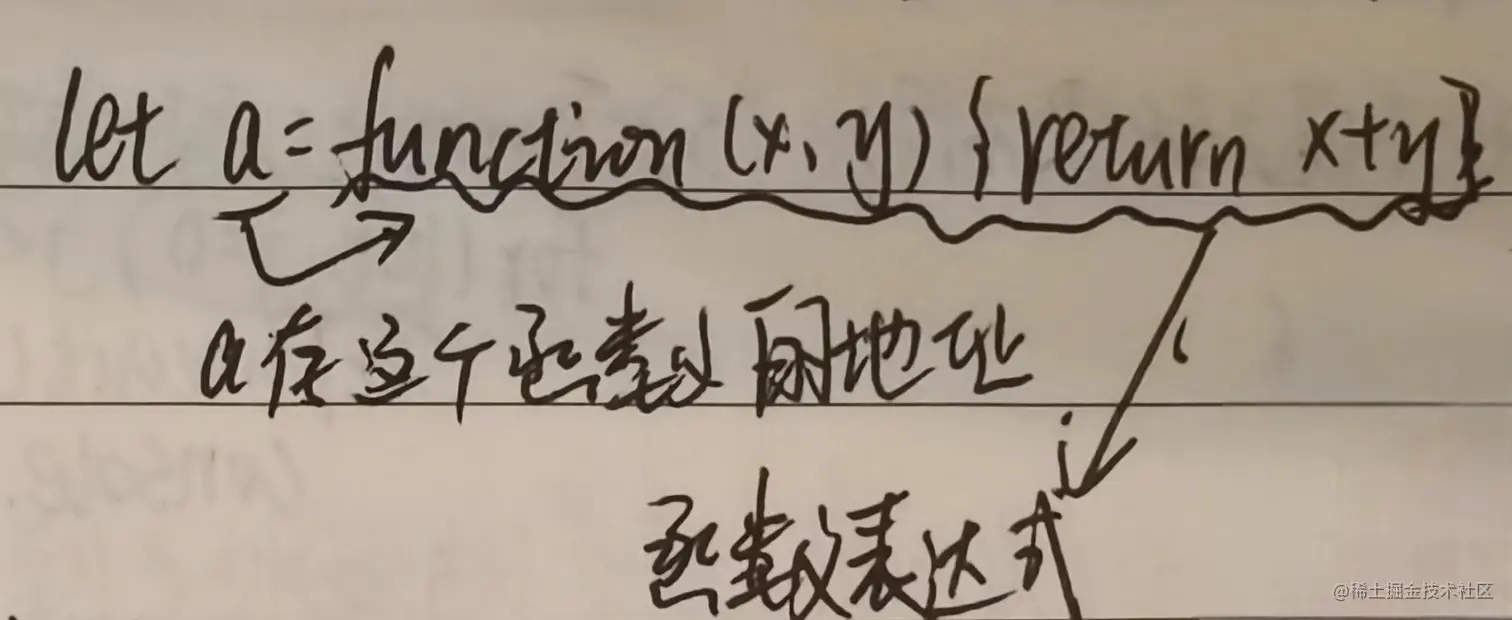 let a=function(x,y){return x+y}
a存这个函数的地址
函数表达式
@稀土掘金技术社区